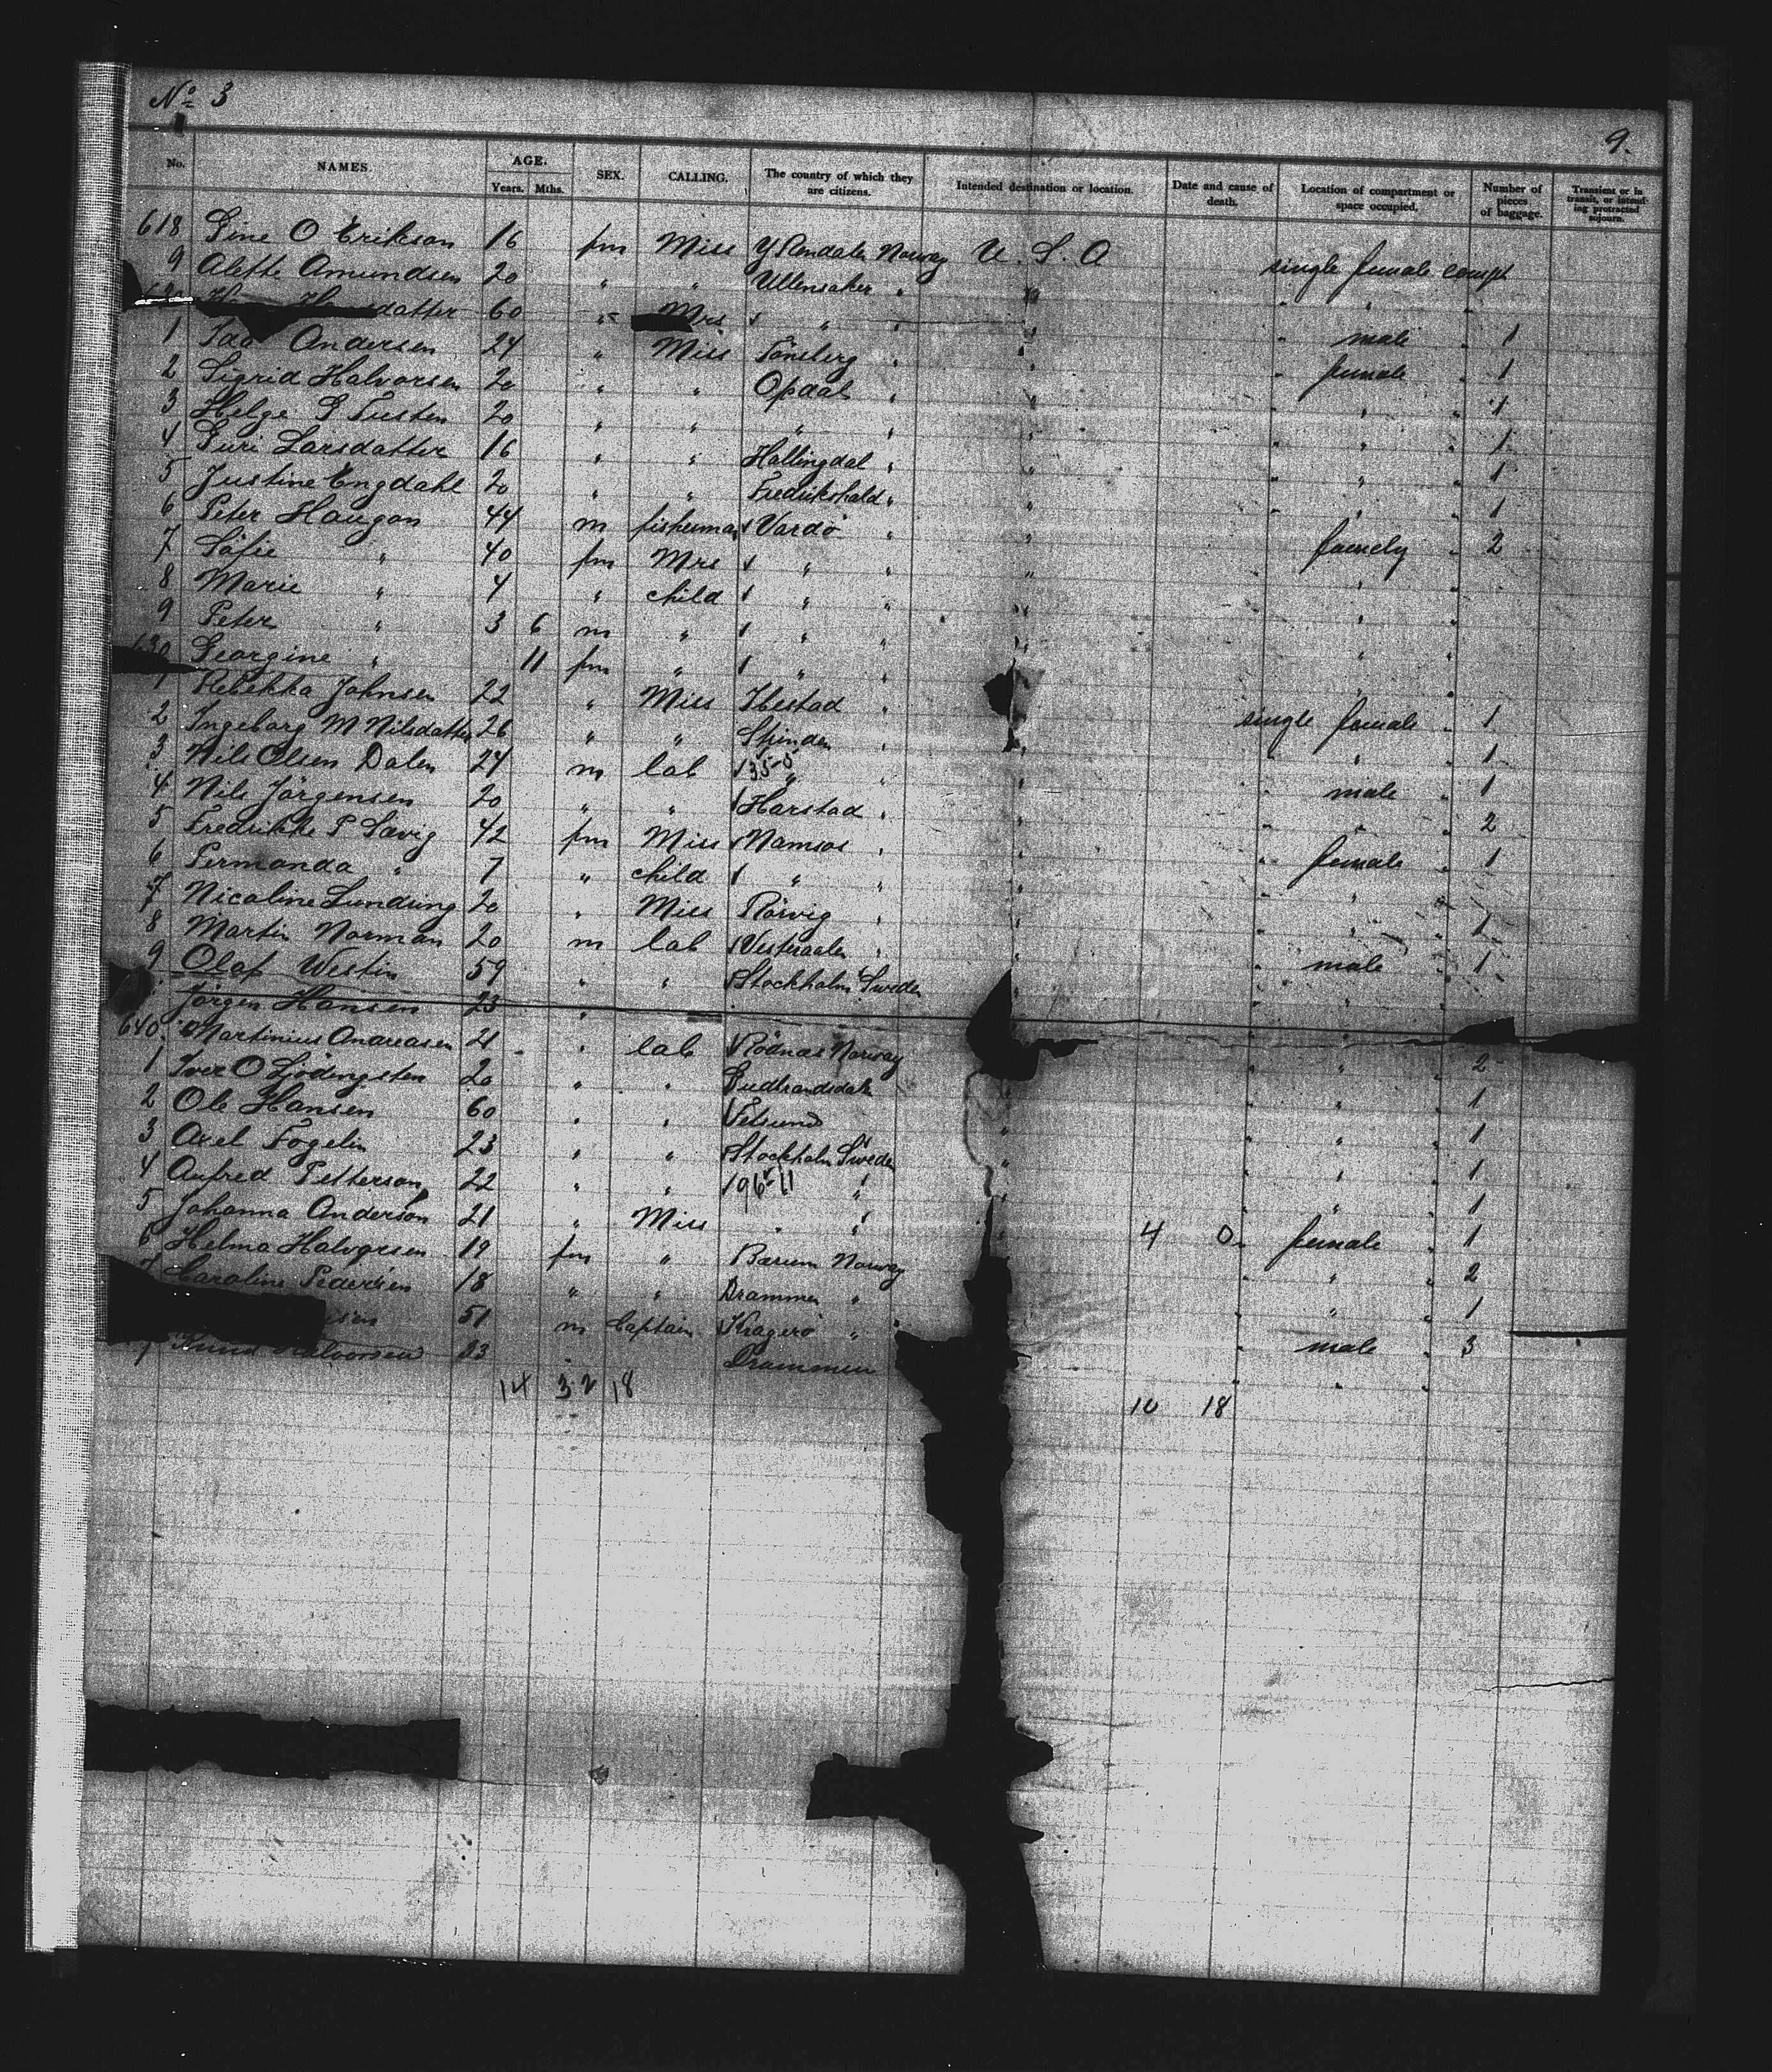 No 3
9.
No. NAMES. AGE. Years. Mths. SEX. CALLING. The country of which they are citizens. Intended destination or location. Date and cause of death. Location of compartment or space occupied. Number of pieces of baggage. Transient or in transit, or intending protracted sojourn.
618 Sine O Erikson 16 fm Miss Y Rendalen Norway U. S. A single female compt
9 Alette Amundsen 20 " " Ullensaker " " " "
datter 60 " Mrs " " " " male " 1
1 Ida Andersen 24 " Miss Tönsberg " " " female " 1
2 Sigrid Halvorsen 20 " " Opdal " " " " " 1
3 Helge S Tusten 20 " " " " " " " " 1
4 Guri Larsdatter 16 " " Hallingdal " " " " " 1
5 Justine Engdahl 20 " " Fredrikshald " " " " " 1
6 Peter Haugan 44 m fisherman Vardö " " family " 2
7 Sofie " 40 fm Mrs " " " " "
8 Marie " 4 " child " " " " "
9 Peter " 3 6 m " " " " " "
630 Georgine " 11 fm " " " " "
1 Rebekka Johnsen 22 " Miss Ibestad " single female " 1
2 Ingeborg M Nilsdatter 26 " " " " " " 1
3 Nils Olsen Dalen 24 m lab " " " " male " 1
4 Nils Jörgensen 20 " " Harstad " " " " " 2
5 Fredrikke P Savig 42 fm Miss Namsos " " " female " 1
6 " 7 " child " " " " "
7 Nicoline Lundring 20 " Miss Rörvig " " " " " 1
8 Martin Norman 20 m lab Vesteraalen " " " male " 1
9 Olaf Westin 59 " " Stockholm Sweden " "
Jörgen Hansen 23 "
640 Martinius Andreasen 21 " lab Norway " " " 2
1 Iver O 20 " " Gudbrandsdalen " " " 1
2 Ole Hansen 60 " " Fetsund " " " " 1
3 Axel Fogelin 23 " " Stockholm Sweden " " " " 1
4 Petterson 22 " " 196-11 " " " " 1
5 Johanna Anderson 21 " Miss " " " 4 0 female " 1
6 Helma Halvorsen 19 fm " Bærum Norway " " " 2
7 Caroline Pedersen 18 " " Drammen " " " " 1
51 m Captain Kragerö " " male " 3
Halvorsen 23 " Drammen " " "
14 32 18 10 18